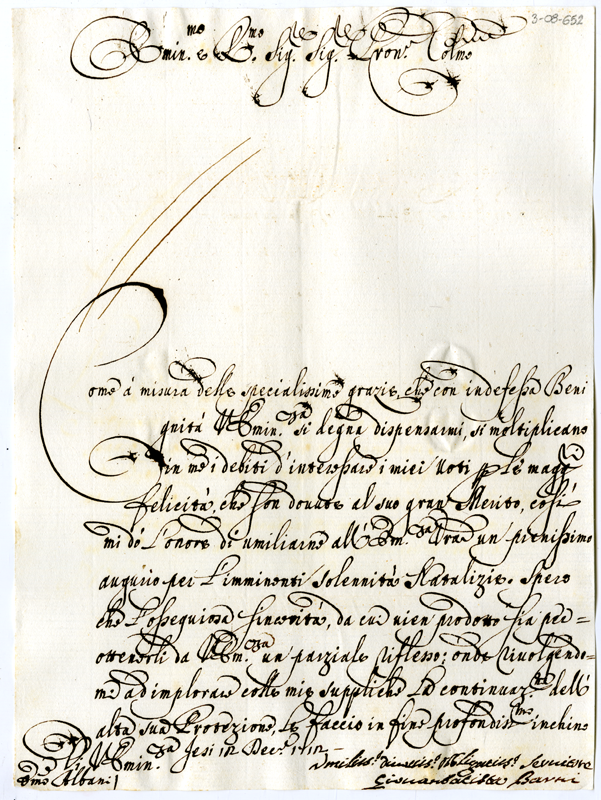 3-08-652
Emin.mo e R.mo Sig. Sig.re Pron.e Colmo
Come á misura delle specialissime grazie, che con indefessa Beni
gnitá V Emin.za si degna dispensarmi, si moltiplicano
in me i debiti d'interessare i miei Voti p le magg.ri
felicitá, che son douute al suo gran Merito, cosí
mi dó l'onore di umiliarne all'Em.za Vra un pienissimo
augurio per l'imminenti Solennitá Natalizie. Spero
che l'ossequiosa sinceritá, da cui uien prodotto sia per=
ottenerli da V Em.za un parziale riflesso; onde riuolgendo=
me ad implorare colle mie suppliche la continuaz.ne dell'
alta sua Protezione, le faccio in fine profondis.mo inchino
Di V Emin.za Jesi 12 Dec.e
Sre Albani
Seruitore
Giouanbatista Barni